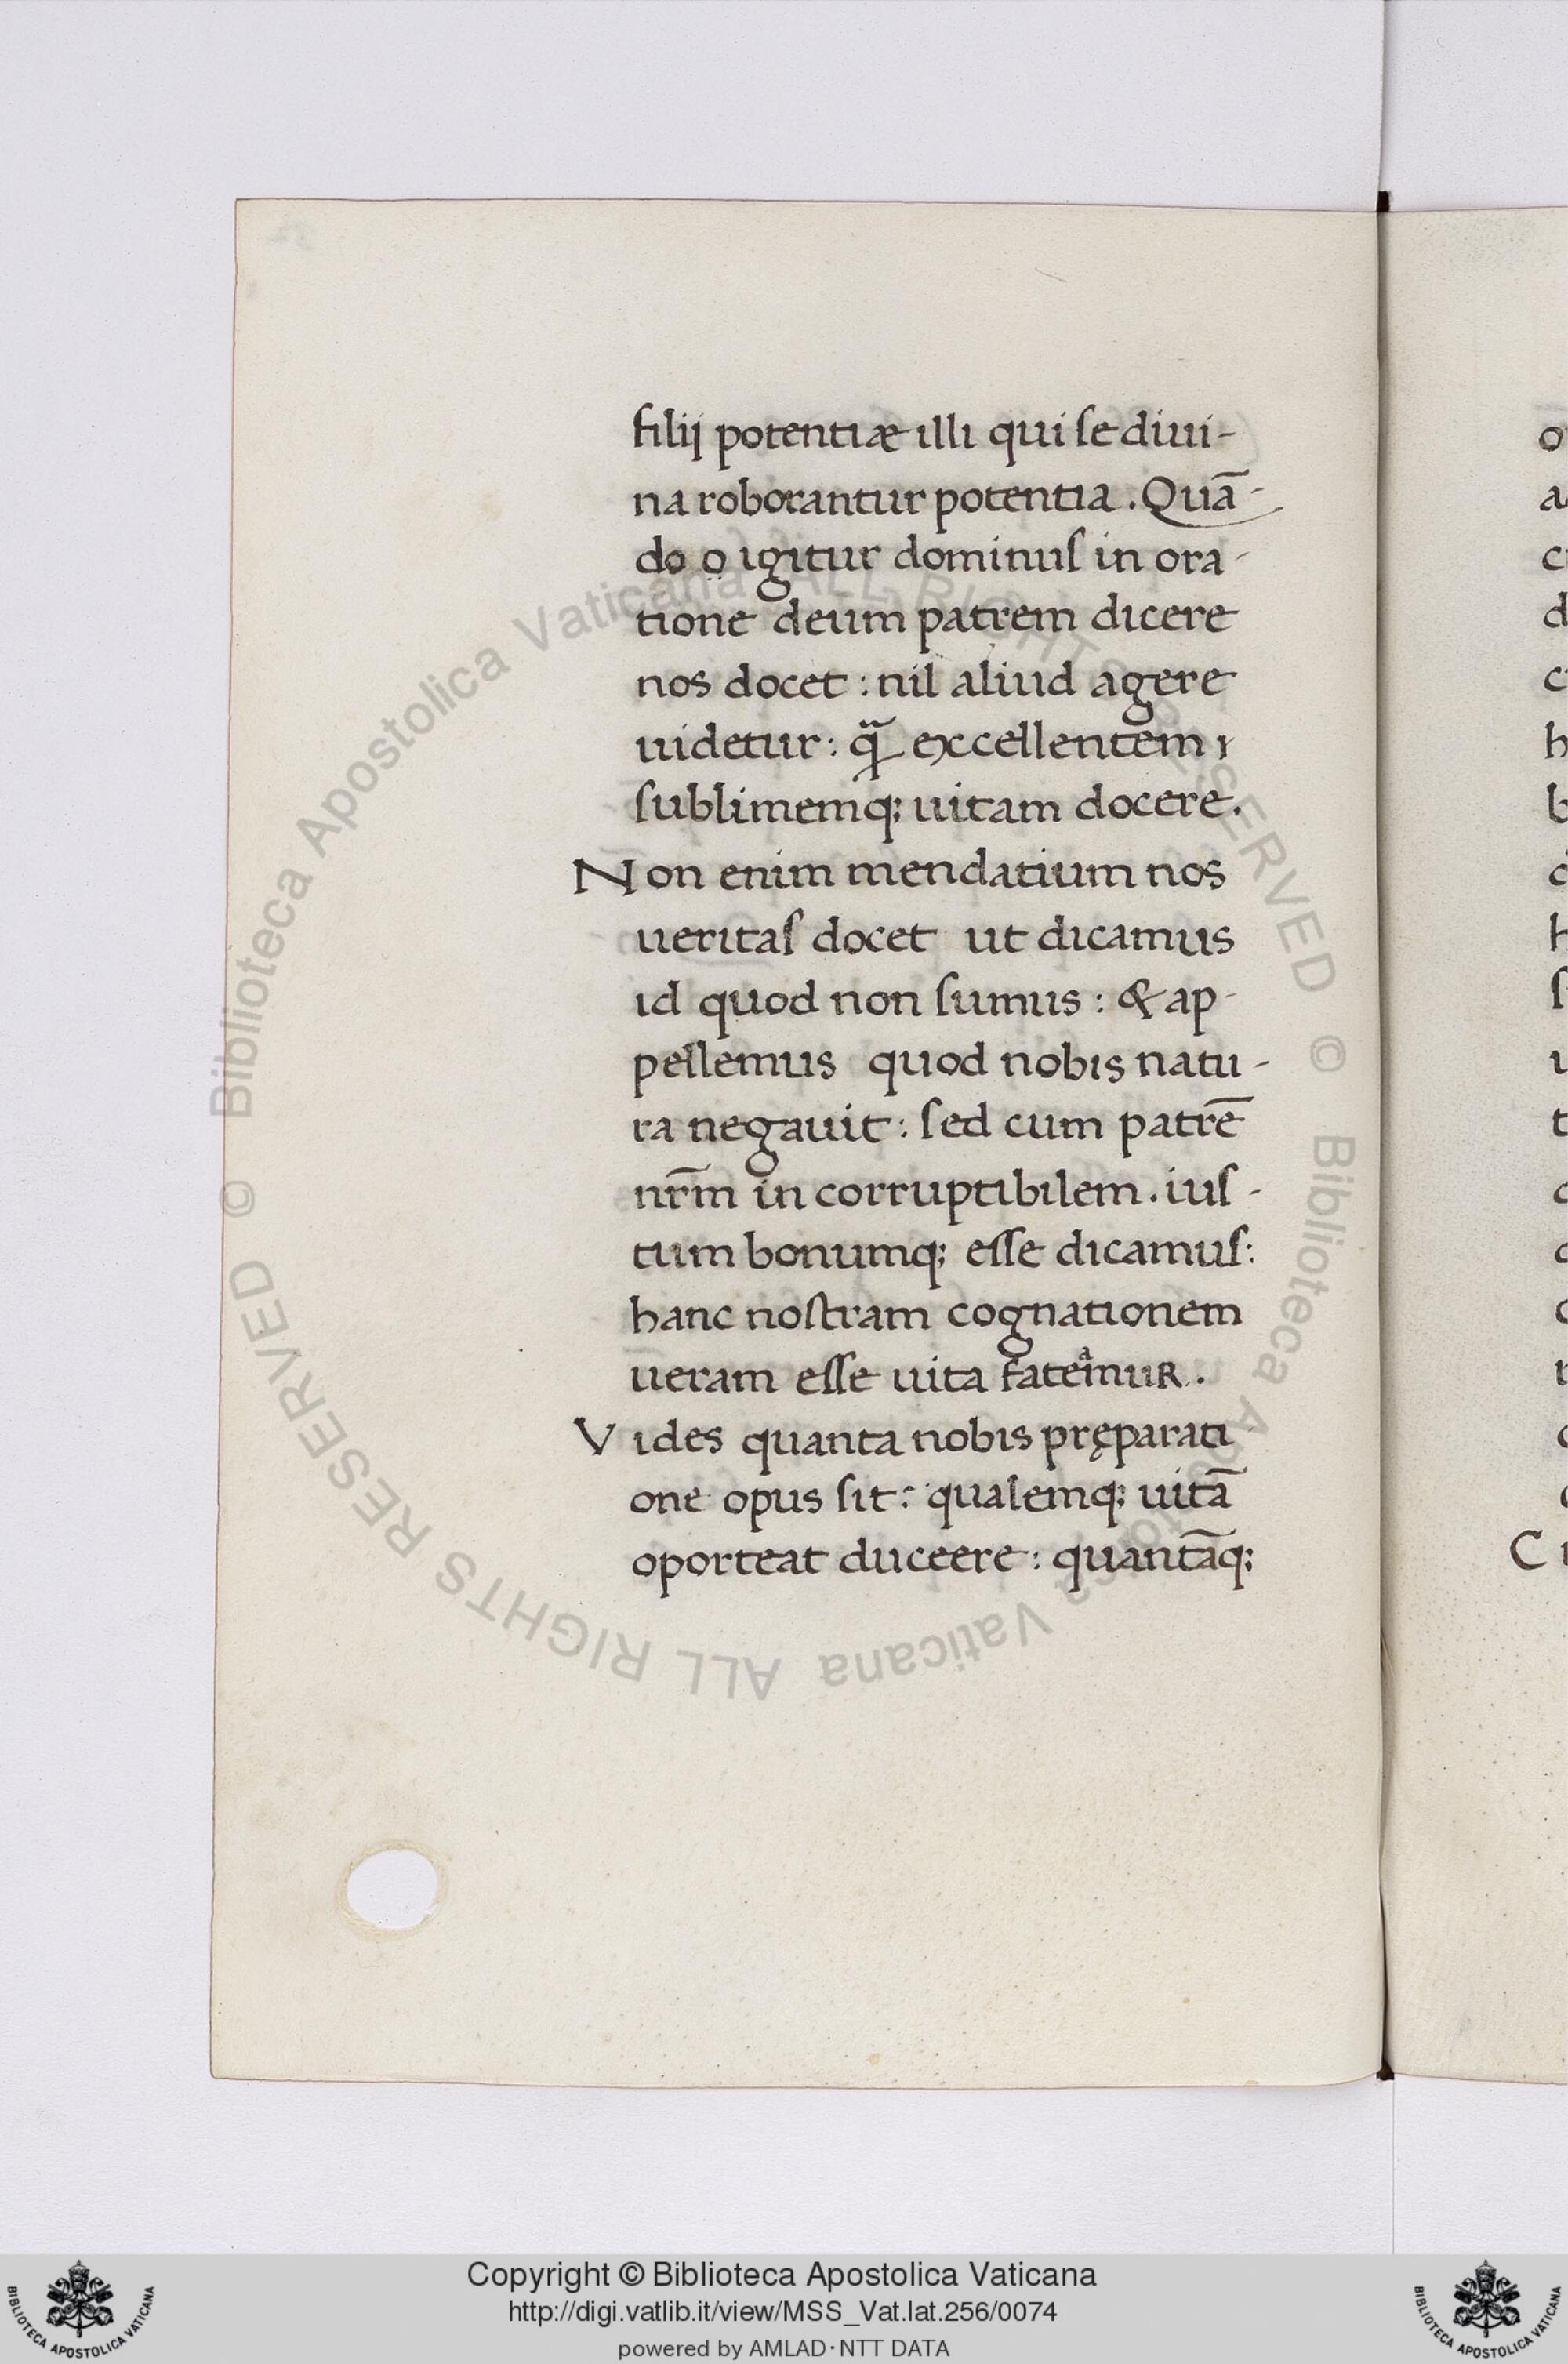 filij potentiæ illi qui ſe diui-
na roborantur potentia . Quā-
do ọ igitur dominuſ in ora-
tione deum patrem dicere
nos docet : nil aliud agere
uidetur : qͣ̃ excellentem
ſublimemq; uitam docere.
Non enim mendatium nos
ueritaſ docet ut dicamus
id quod non ſumus : & ap-
pellemus quod nobis natu-
ra negauit : ſed cum patrē
nr̄m in corruptibilem . iuſ-
tum bonumq; eſſe dicamuſ:
hanc noſtram cognationem
ueram eſſe uita fateͣmuR .
Vides quanta nobis pręparati
one opus ſit : qualemq; uitā
oporteat duceere : quantāq;
© Biblioteca Apostolica Vaticana ALL RIGHTS RESERVED
© Biblioteca Apostolica Vaticana ALL RIGHTS RESERVED
C
BIBLIOTECA APOSTOLICA VATICANA
Copyright © Biblioteca Apostolica Vaticana
http://digi.vatlib.it/view/MSS_Vat.lat.256/0074
powered by AMLAD·NTT DATA
BIBLIOTECA APOSTOLICA VATICANA